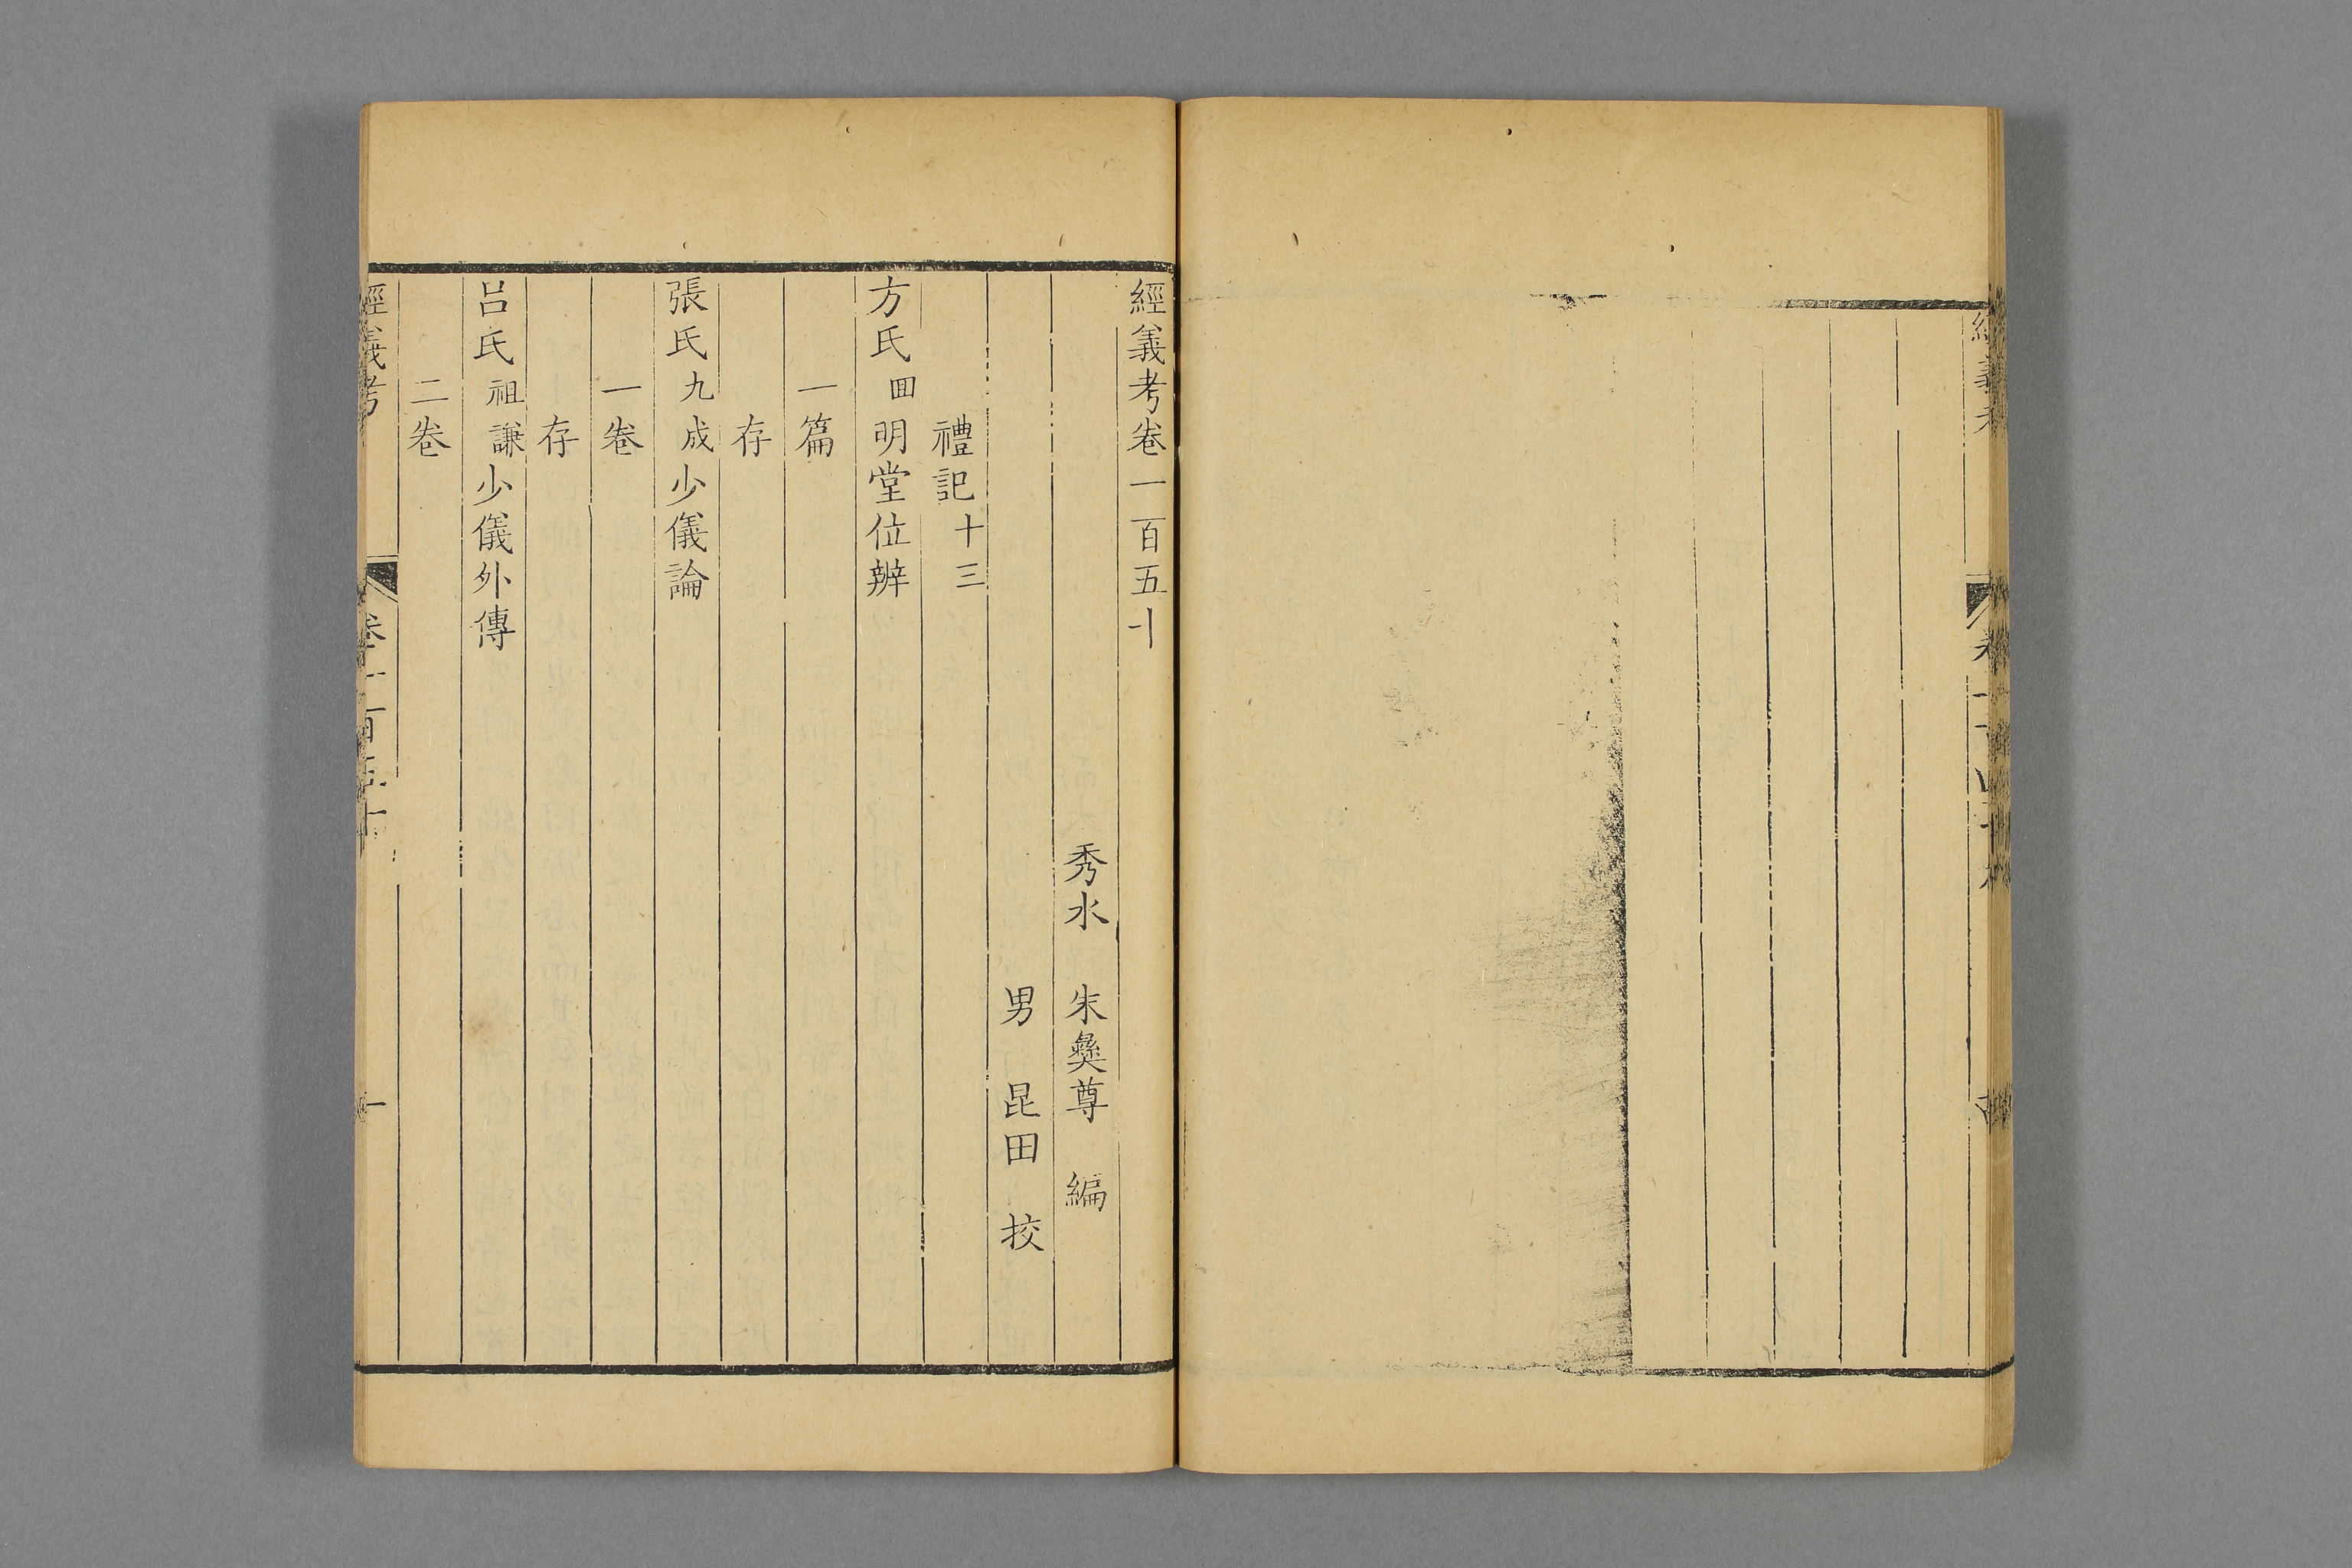 經義考卷一百五十
秀水 朱彝尊 編
男 昆田 挍
禮記十三
方氏囬明堂位辨
一篇
存
張氏九成少儀論
一卷
存
呂氏祖謙少儀外傳
二卷
經義考 卷一百五十 一